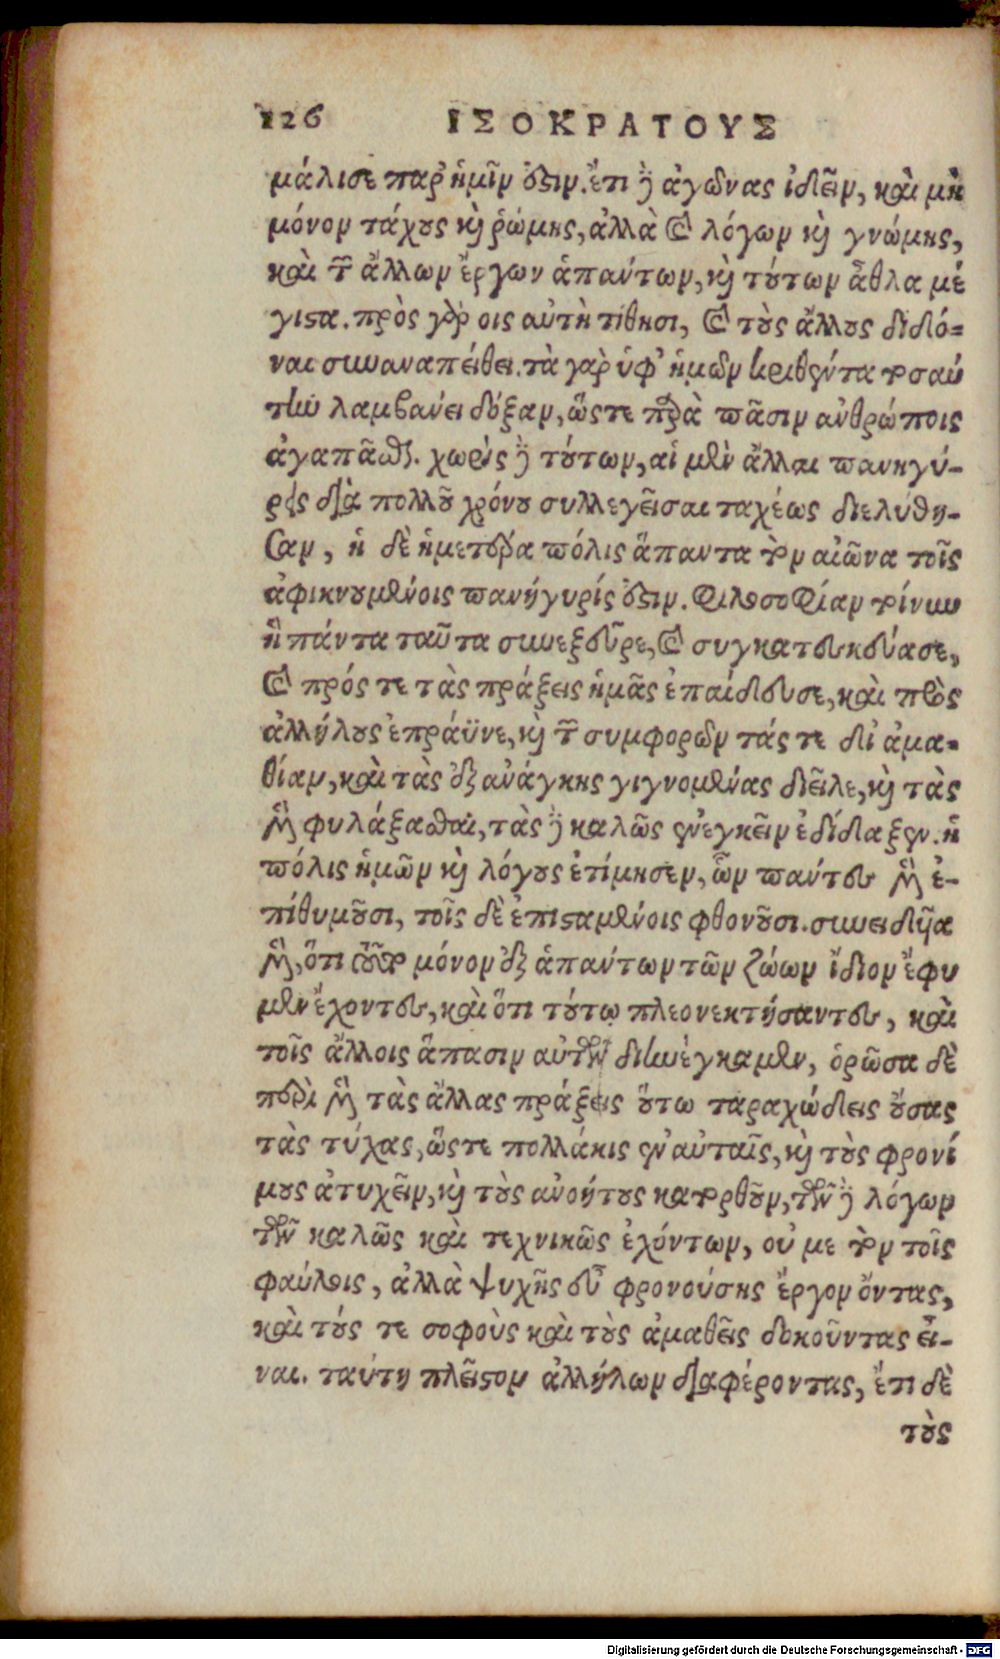 126 ΙΣΟΚΡΑΤΟΥΣ
μάλιστα παρ' ἡμῖν ἐστιν. ἔτι δ' ἀγῶνας ἰδεῖν, καὶ μὴ
μόνον τάχους καὶ ῥώμης, ἀλλὰ καὶ λόγων καὶ γνώμης,
καὶ τῶν ἄλλων ἔργων ἁπάντων, καὶ τούτων ἆθλα μέ
γιστα. πρὸς γὰρ οις αὐτὴ τίθησι, καὶ τοὺς ἄλλους διδό-
ναι συναναπείθει. τὰ γὰρ ὑφ' ἡμῶν κριθέντα τοσαύ
την λαμβάνει δόξαν, ὥστε παρὰ πᾶσιν ἀνθρώποις
ἀγαπᾶσθαι. χωρὶς δὲ τούτων, αἱ μὲν ἄλλαι πανηγύ-
ρεις διὰ πολλοῦ χρόνου συλλεγεῖσαι ταχέως διελύθη-
σαν, ἡ δὲ ἡμετέρα πόλις ἅπαντα τὸν αἰῶνα τοῖς
ἀφικνουμένοις πανήγυρίς ἐστιν. Φιλοσοφίαν τοίνυν
ἣ πάντα ταῦτα συνεξεῦρε, καὶ συγκατεσκεύασε,
καὶ πρός τε τὰς πράξεις ἡμᾶς ἐπαίδευσε, καὶ πρὸς
ἀλλήλους ἐπράϋνε, καὶ τῶν συμφορῶν τάς τε δι' ἀμα-
θίαν, καὶ τὰς ἐξ ἀνάγκης γιγνομένας διεῖλε, καὶ τὰς
μὲν φυλάξασθαι, τὰς δὲ καλῶς ἐνεγκεῖν ἐδίδαξεν. ἡ
πόλις ἡμῶν καὶ λόγους ἐτίμησεν, ὧν πάντες μὲν ἐ-
πιθυμοῦσι, τοῖς δὲ ἐπισταμένοις φθονοῦσι. συνειδυῖα
μὲν, ὅτι τοῦτο μόνον ἐξ ἁπάντων τῶν ζώων ἴδιον ἔφυ
μεν ἔχοντες, καὶ ὅτι τούτῳ πλεονεκτήσαντες, καὶ
τοῖς ἄλλοις ἅπασιν αὐτῶν διηνέγκαμεν, ὁρῶσα δὲ
περὶ μὲν τὰς ἄλλας πράξεις οὕτω ταραχώδεις οὔσας
τὰς τύχας, ὥστε πολλάκις ἐν αὐταῖς, καὶ τοὺς φρονί
μους ἀτυχεῖν, καὶ τοὺς ἀνοήτους κατορθοῦν, τῶν δὲ λόγων
τῶν καλῶς καὶ τεχνικῶς ἐχόντων, οὐ με τὸν τοῖς
φαύλοις, ἀλλὰ ψυχῆς εὖ φρονούσης ἔργον ὄντας,
καὶ τούς τε σοφοὺς καὶ τοὺς ἀμαθεῖς δοκοῦντας εἶ-
ναι. ταύτῃ πλεῖστον ἀλλήλων διαφέροντας, ἔτι δὲ
τοὺς
Digitalisierung gefördert durch die Deutsche Forschungsgemeinschaft - DFG